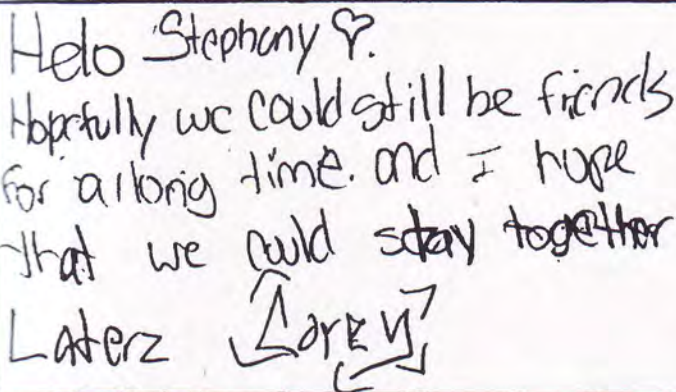 Helo Stephany ♡.
Hopefully we could still be friends
for a long time. and I hope
that we could stay together
Laterz